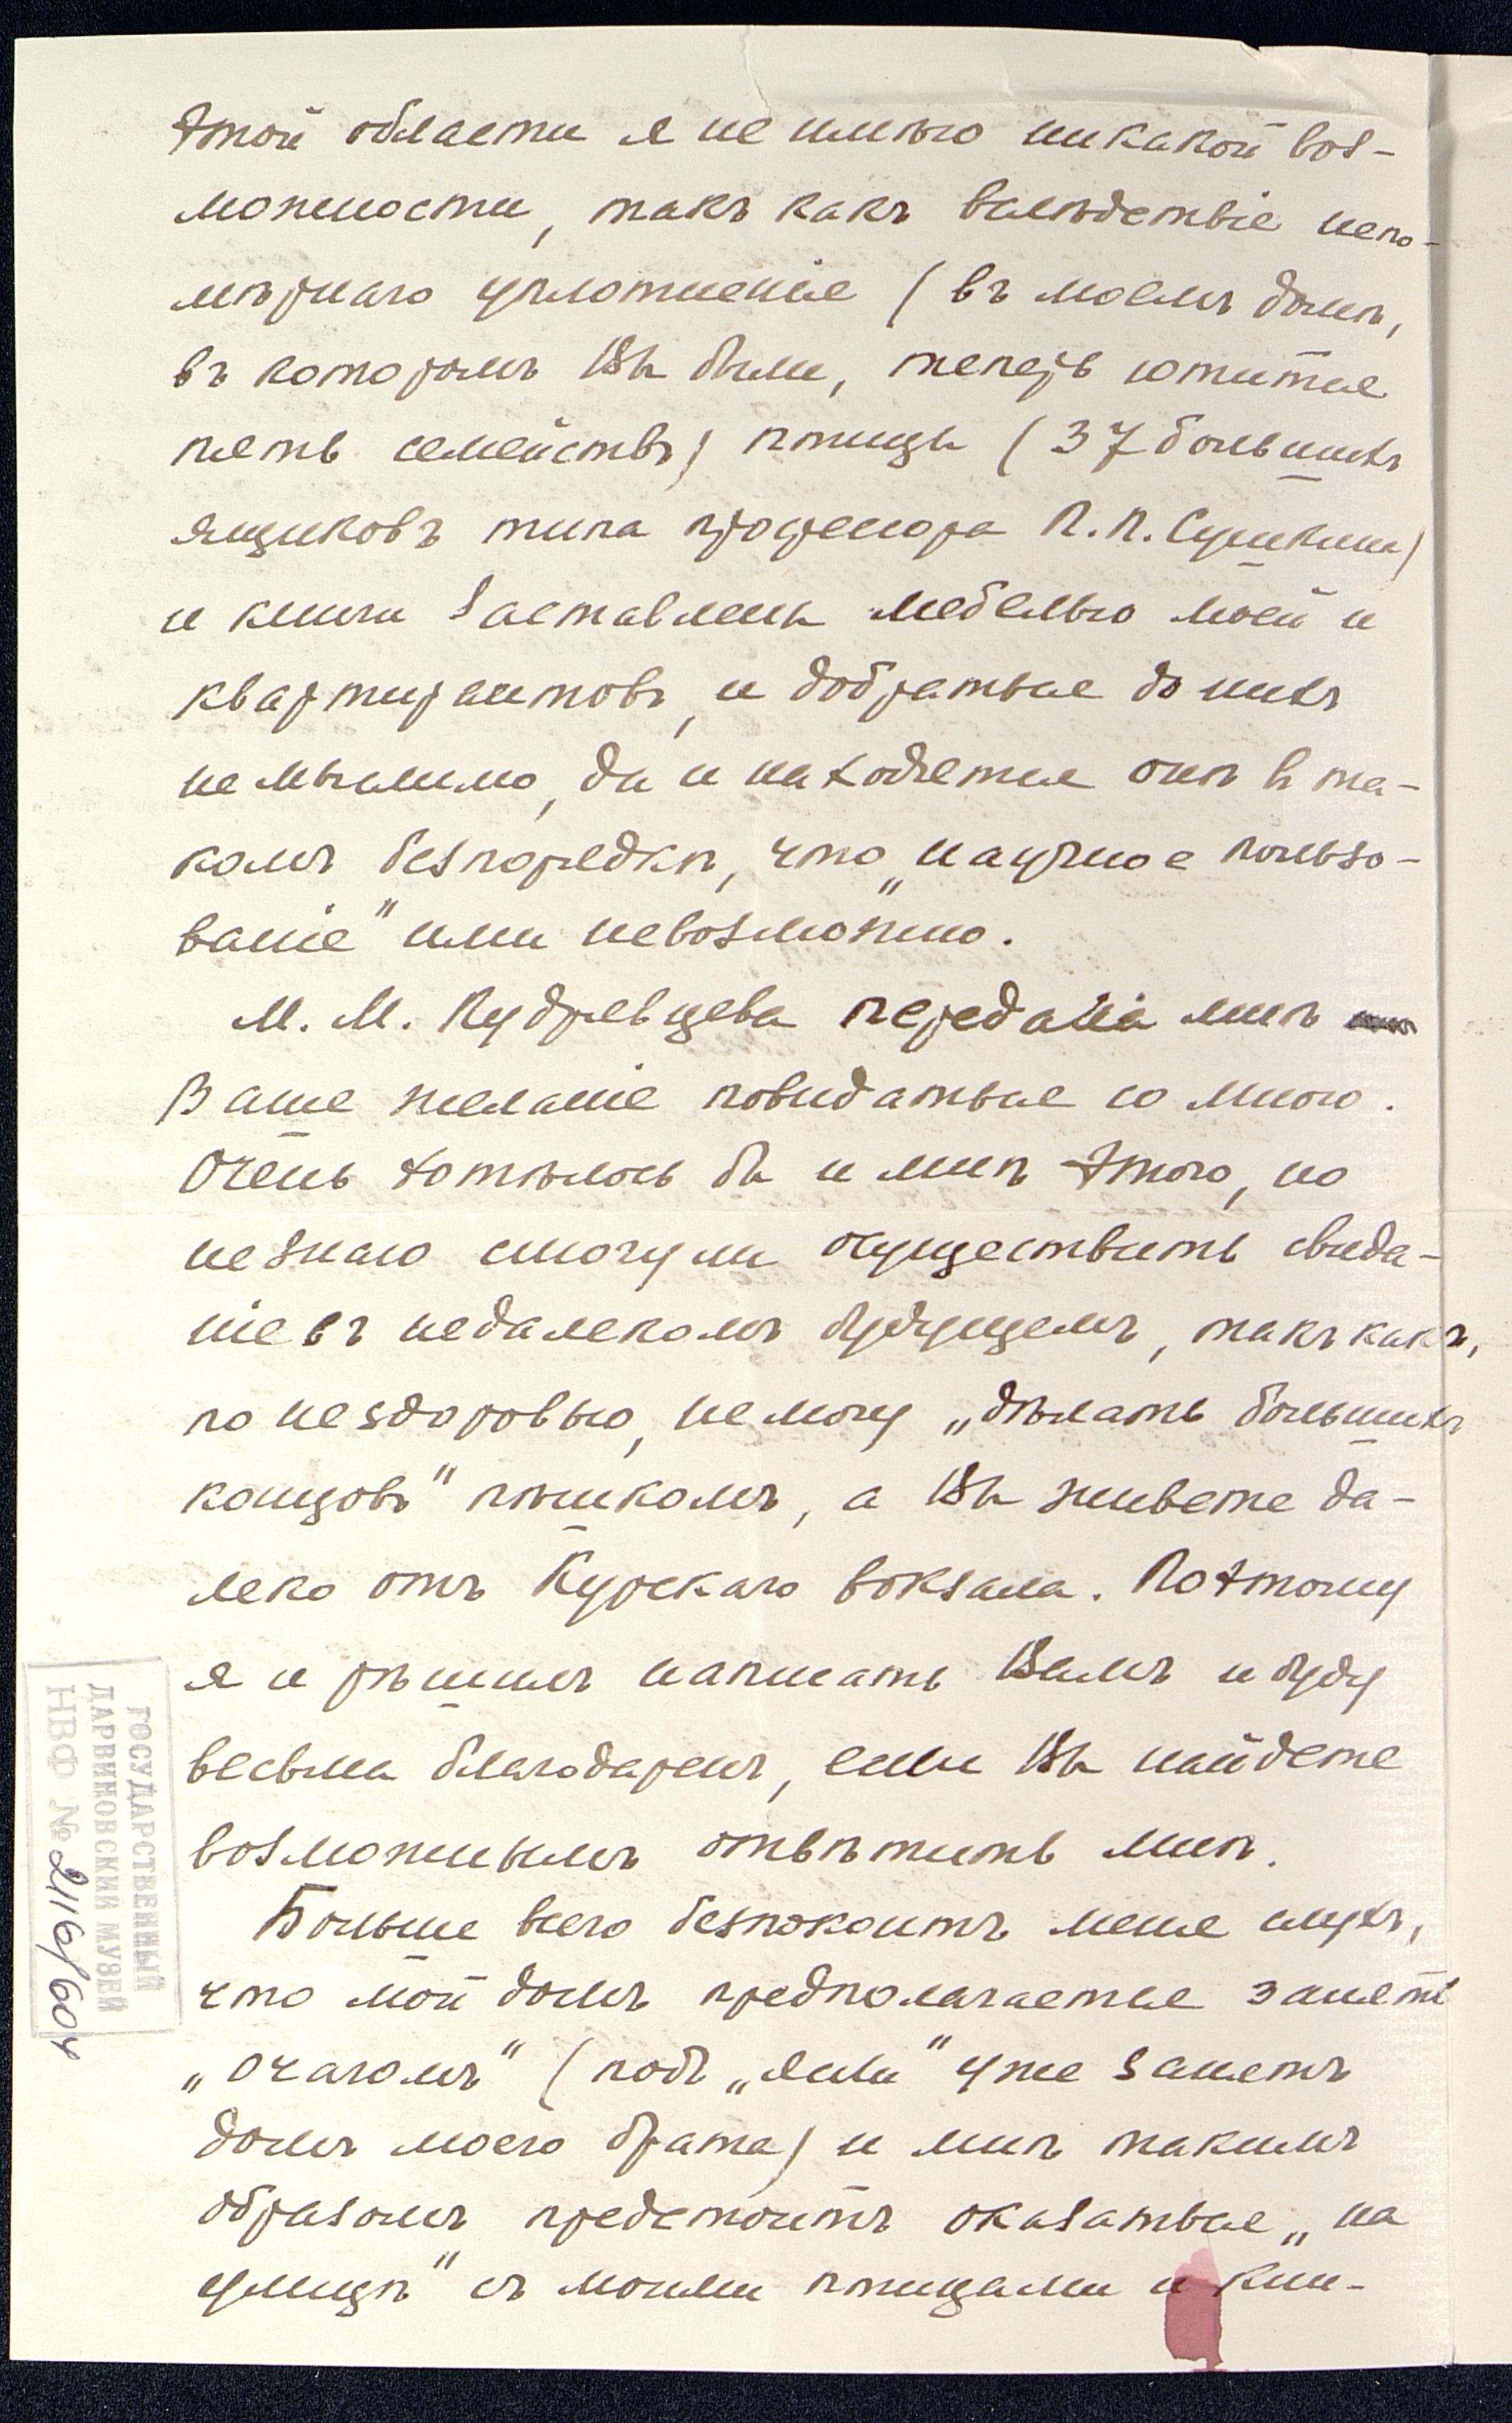 этой области я не имѣю никакой воз-
можности, такъ какъ вслѣдствіе непо-
мѣрнаго уплотненія (въ моемъ домѣ,
въ которомъ Вы были, теперь ютится
пять семействъ) птицы (37 большихъ
ящиковъ типа профессора П. П. Сушкина)
и книги заставлены мебелью моей и
квартирантовъ, и добраться до нихъ
немыслимо, да и находятся онѣ в та-
комъ безпорядкѣ, что „научное пользо-
ваніе" ими невозможно.
М. М. Кудрявцева передала мнѣ
Ваше желаніе повидаться со мною.
Очень хотѣлось бы и мнѣ этого, но
не знаю смогу ли осуществить свида-
ніе въ недалекомъ будущемъ, такъ какъ,
по нездоровью, не могу „дѣлать большихъ
концовъ" пѣшкомъ, а Вы живете да-
леко отъ Курскаго вокзала. Поэтому
я и рѣшилъ написать Вамъ и буду
весьма благодаренъ, если Вы найдете
возможнымъ отвѣтить мнѣ.
Больше всего безпокоитъ меня слухъ,
что мой домъ предполагается занять
„очагомъ" (подъ „ясли" уже занятъ
домъ моего брата) и мнѣ такимъ
образомъ предстоитъ оказаться „на
улицѣ" съ моими птицами и кни-
ГОСУДАРСТВЕННЫЙ
ДАРВИНОВСКИЙ МУЗЕЙ
НВФ № 2116/604